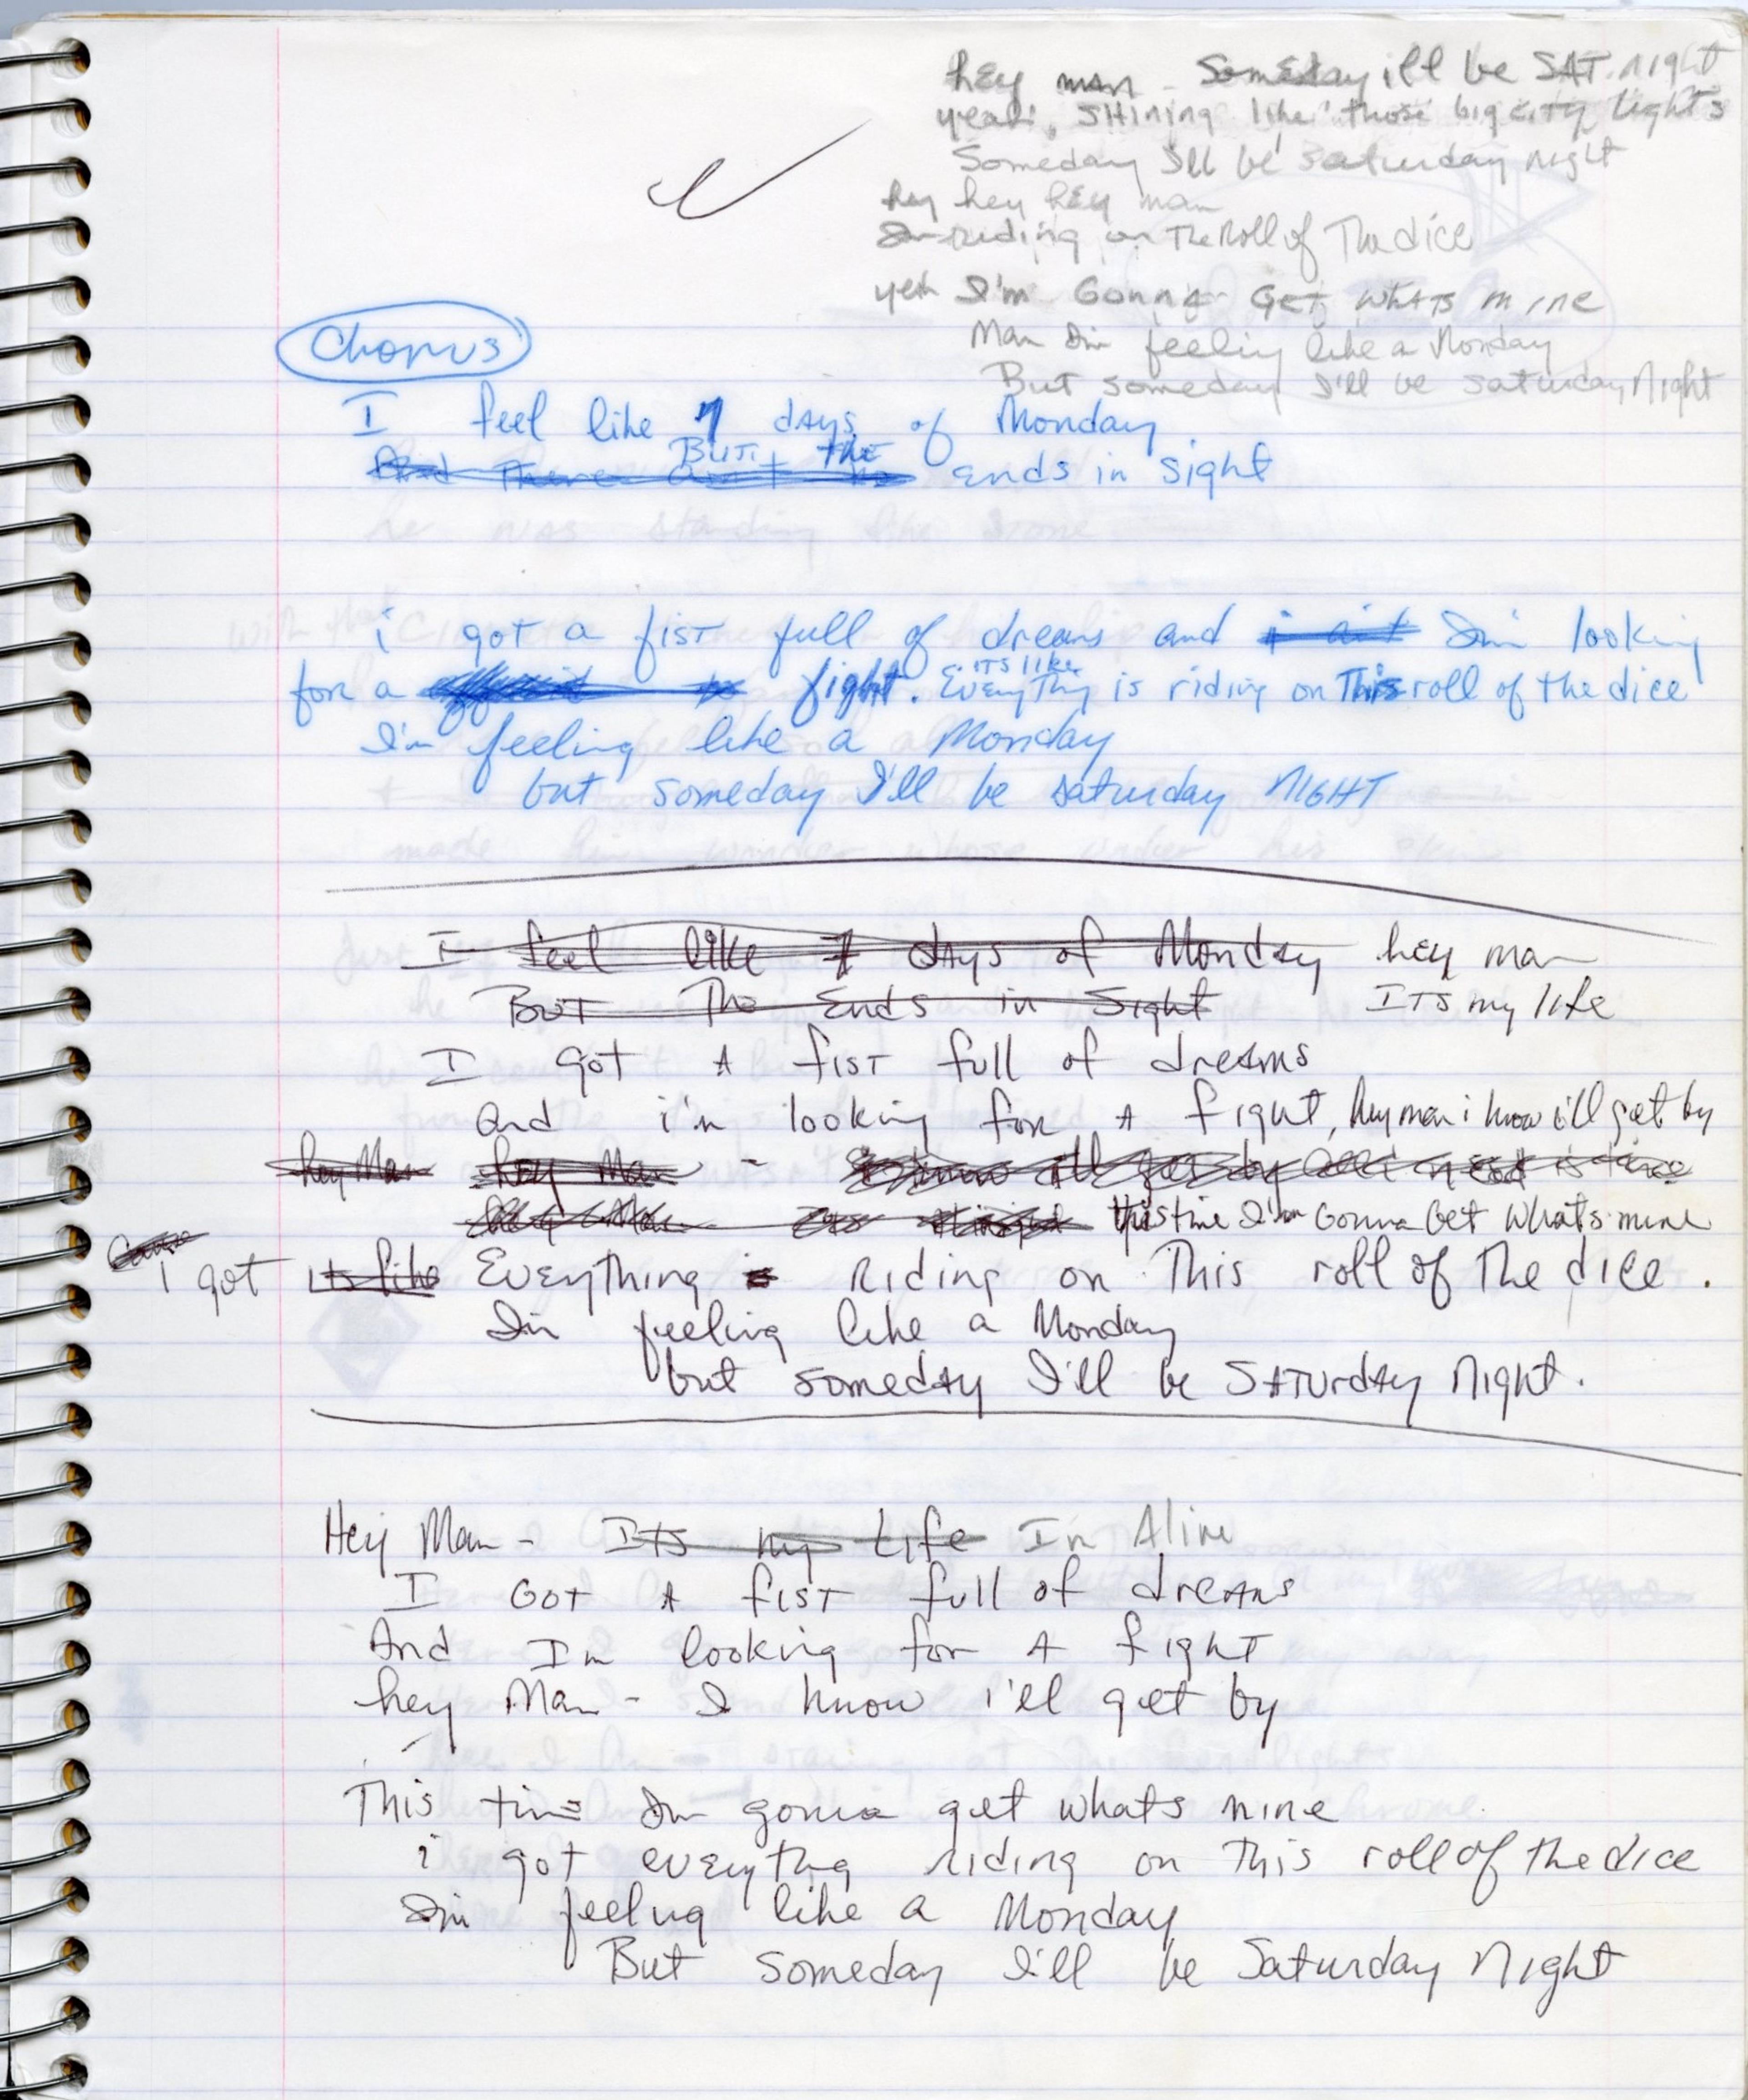 hey man - Someday ill be SAT. night
yeah, SHining like those big city lights
Someday I'll be saturday night
hey hey hey man
riding on The Roll of The dice
yeh I'm Gonna GET WHATS MINE
Man I'm feeling like a Monday
But someday I'll be saturday Night
Chorus
I feel like 7 days of Monday
BUT THE
And There ain't no ends in sight
i got a fist full of dreams and i ain't I'm looking
ITS like
for a fight. Everything is riding on This roll of the dice
I'm feeling like a Monday
but someday I'll be saturday NIGHT
I feel like 7 days of Monday hey man
BUT The Ends in Sight ITS my life
I got A fist full of dreams
and i'm looking for A fight, hey man i know i'll get by
hey Man hey Man - all i need is time
this time I'm Gonna Get what's mine
Cause
i got its like Everything is Riding on This roll of The dice.
I'm feeling like a Monday
but someday I'll be SATurdAy Night.
Hey Man - ITS my Life Im Alive
I GoT A fist full of dreams
And Im looking for A fight
hey Man - I know i'll get by
This time Im gonna get whats mine
i got everythg riding on This roll of the dice
I'm feeling like a Monday
But someday I'll be Saturday Night